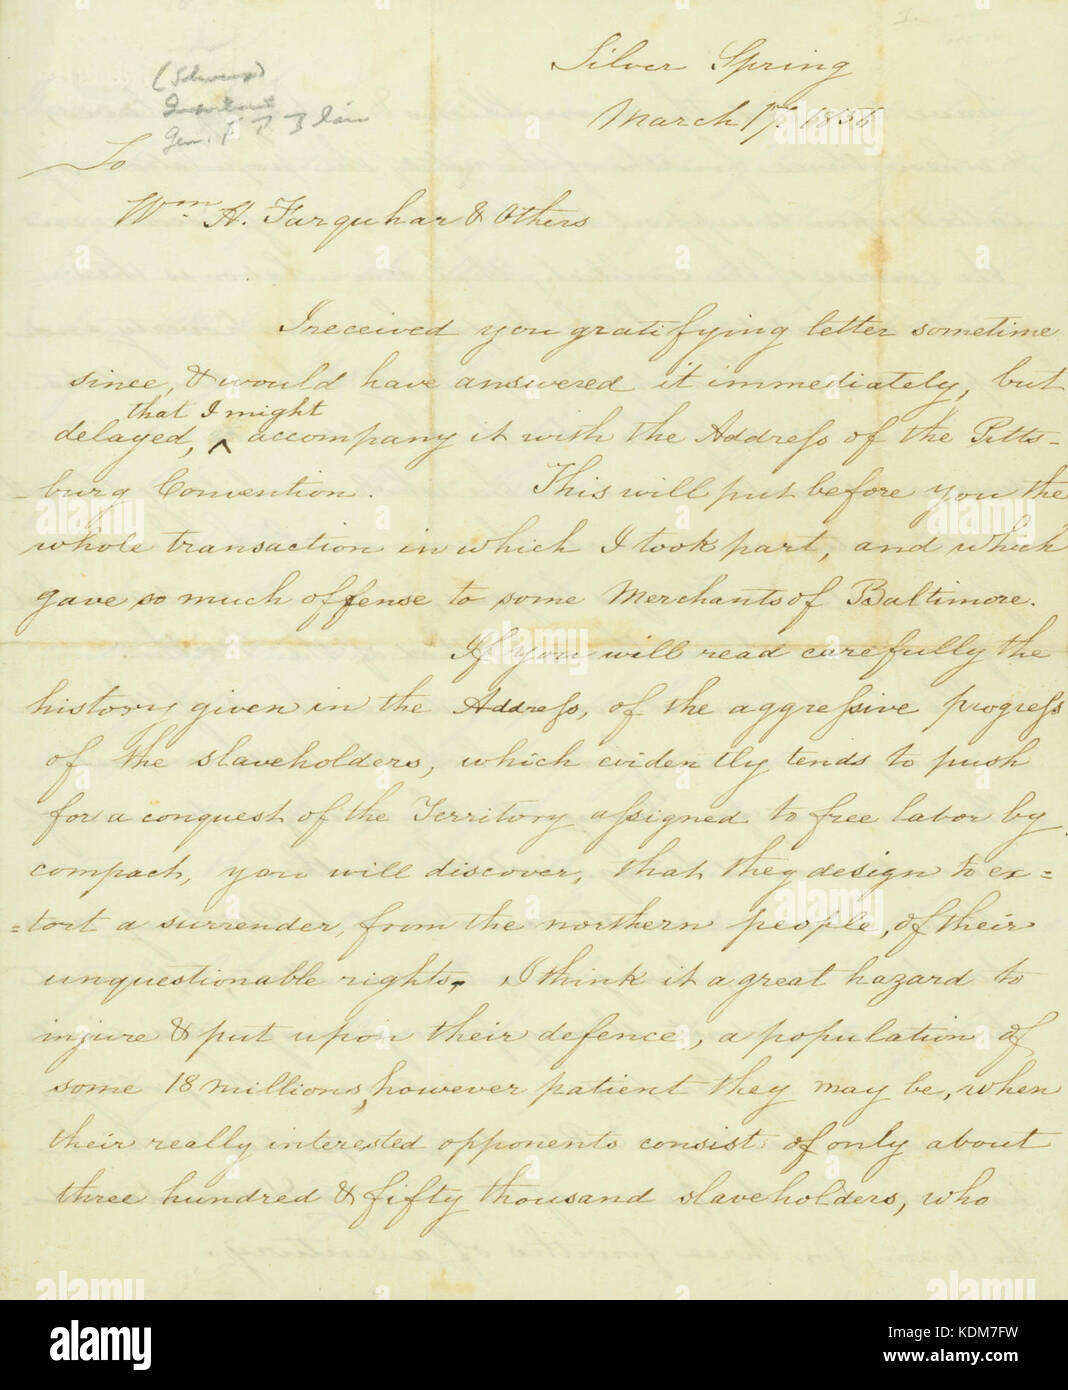 Silver Spring
March 17. 1856
(Slavery)
Important
Gen. F P Blair
To
Wm H. Farquhar & Others
I received you gratifying letter sometime
since, & would have answered it immediately, but
that I might
delayed, ^ accompany it with the Address of the Pitts-
-burg Convention. This will put before you the
whole transaction in which I took part, and which
gave so much offense to some Merchants of Baltimore.
If you will read carefully the
history given in the Address, of the aggressive progress
of the slaveholders, which evidently tends to push
for a conquest of the Territory assigned to free labor by
compact, you will discover, that they design to ex=
=tort a surrender, from the northern people, of their
unquestionable rights. I think it a great hazard to
injure & put upon their defence, a population of
some 18 millions, however patient they may be, when
their really interested opponents consist of only about
three hundred & fifty thousand slaveholders, who
alamy
a
alamy stock photo
KDM7FW
www.alamy.com